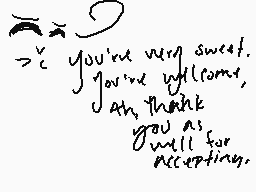 you're very sweet.
you're wellcome,
Ah, thank
you as
well for
accepting.